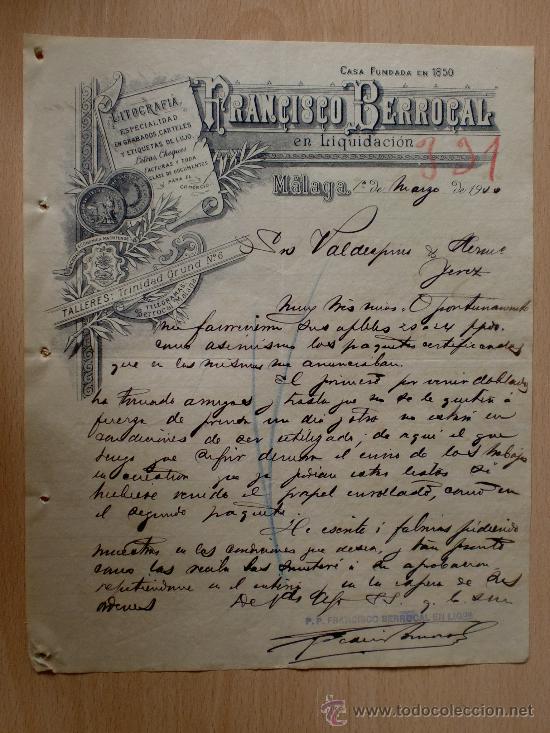 CASA FUNDADA EN 1850
FRANCISCO BERROCAL
en Liquidación
321
LITOGRAFIA
ESPECIALIDAD
EN GRABADOS, CARTELES
Y ETIQUETAS DE LUJO,
Letras, Cheques
FACTURAS Y TODA
CLASE DE DOCUMENTOS
PARA EL
COMERCIO
Málaga, 1º de Marzo de 1900
TALLERES: Trinidad Grund Nº 6
TELEGRAMAS
BERROCAL Málaga
Sres Valdespino y Hermo
Jerez
Muy Sres mios: Oportunamente
me favorecieron sus apbles
como asimismo los paquetes certificados
que en las mismas me anunciaban.
El primero por venir doblado
ha tomado y hasta que no se le quiten á
fuerza de prensa un dia y otro no estará en
condiciones de ser utilizado; de aqui el que
tenga que sufrir demora el curso de los trabajos
en cuestion que ya podian estar listos si
hubiese venido el papel enrollado, como en
el segundo paquete.
He escrito á fabricas pidiendo
muestras en las condiciones que desean, y tan pronto
como las reciba las remitiré á su aprobacion
repitiendome en el interin y en la espera de sus
ordenes
De Vds Afmo S.S. q. b. s. m.
P. P. FRANCISCO BERROCAL EN LIQUI
www.todocoleccion.net
todocoleccion